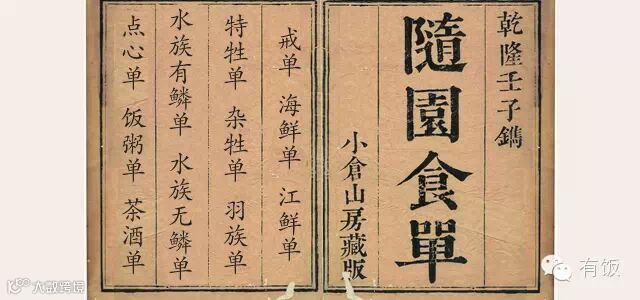 乾隆壬子鐫
隨園食單
小倉山房藏版
戒单 海鲜单 江鲜单
特牲单 杂牲单 羽族单
水族有鳞单 水族无鳞单
点心单 饭粥单 茶酒单
有饭
大数跨境